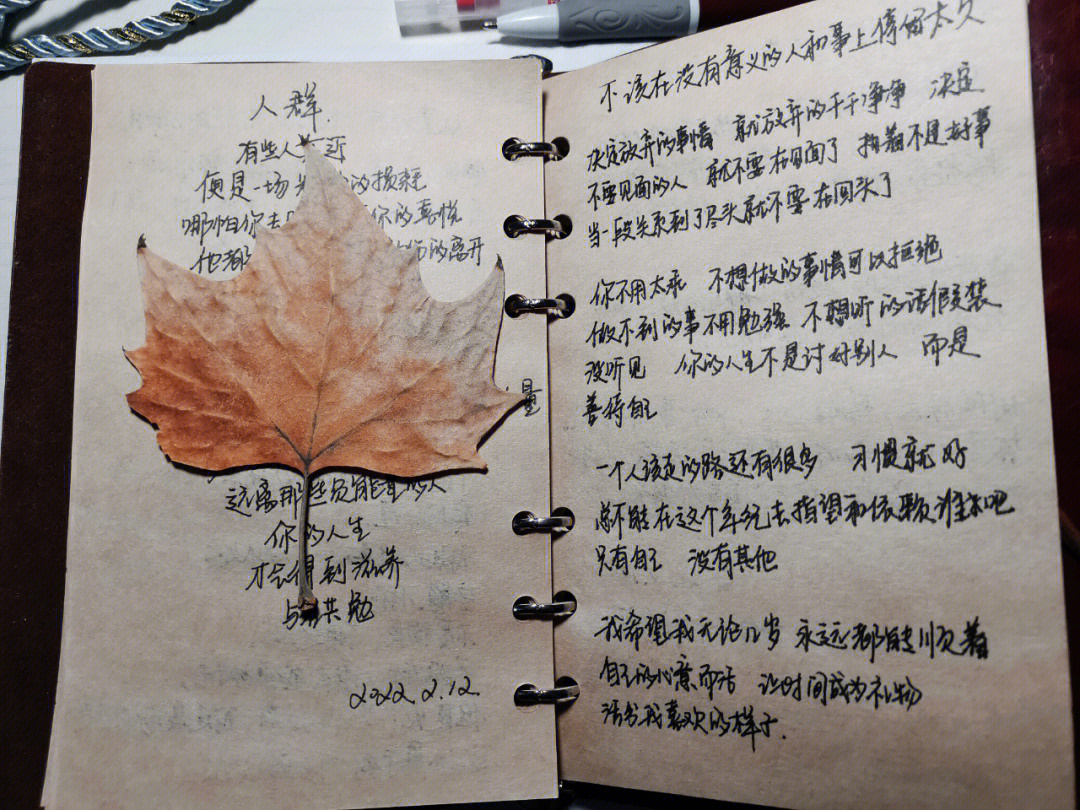 人群.
有些人靠近
便是一场 的损耗
哪怕你去 你的喜悦
他都 的离开
量
远离那些负能量的人
你的人生
才会得到滋养
与 共勉
2022.2.12.
不该在没有意义的人和事上停留太久
决定放弃的事情 就放弃的干干净净 决定
不要见面的人 就不要在见面了 拖着不是好事
当一段关系到了尽头就不要在回头了
你不用太乖 不想做的事情可以拒绝
做不到的事不用勉强 不想听的话假装
没听见 你的人生不是讨好别人 而是
善待自己
一个人该走的路还有很多 习惯就好
总不能在这个年纪去指望和依赖谁来吧
只有自己 没有其他
我希望我无论几岁 永远都能顺着
自己的心意而活 让时间成为礼物
活出我喜欢的样子.